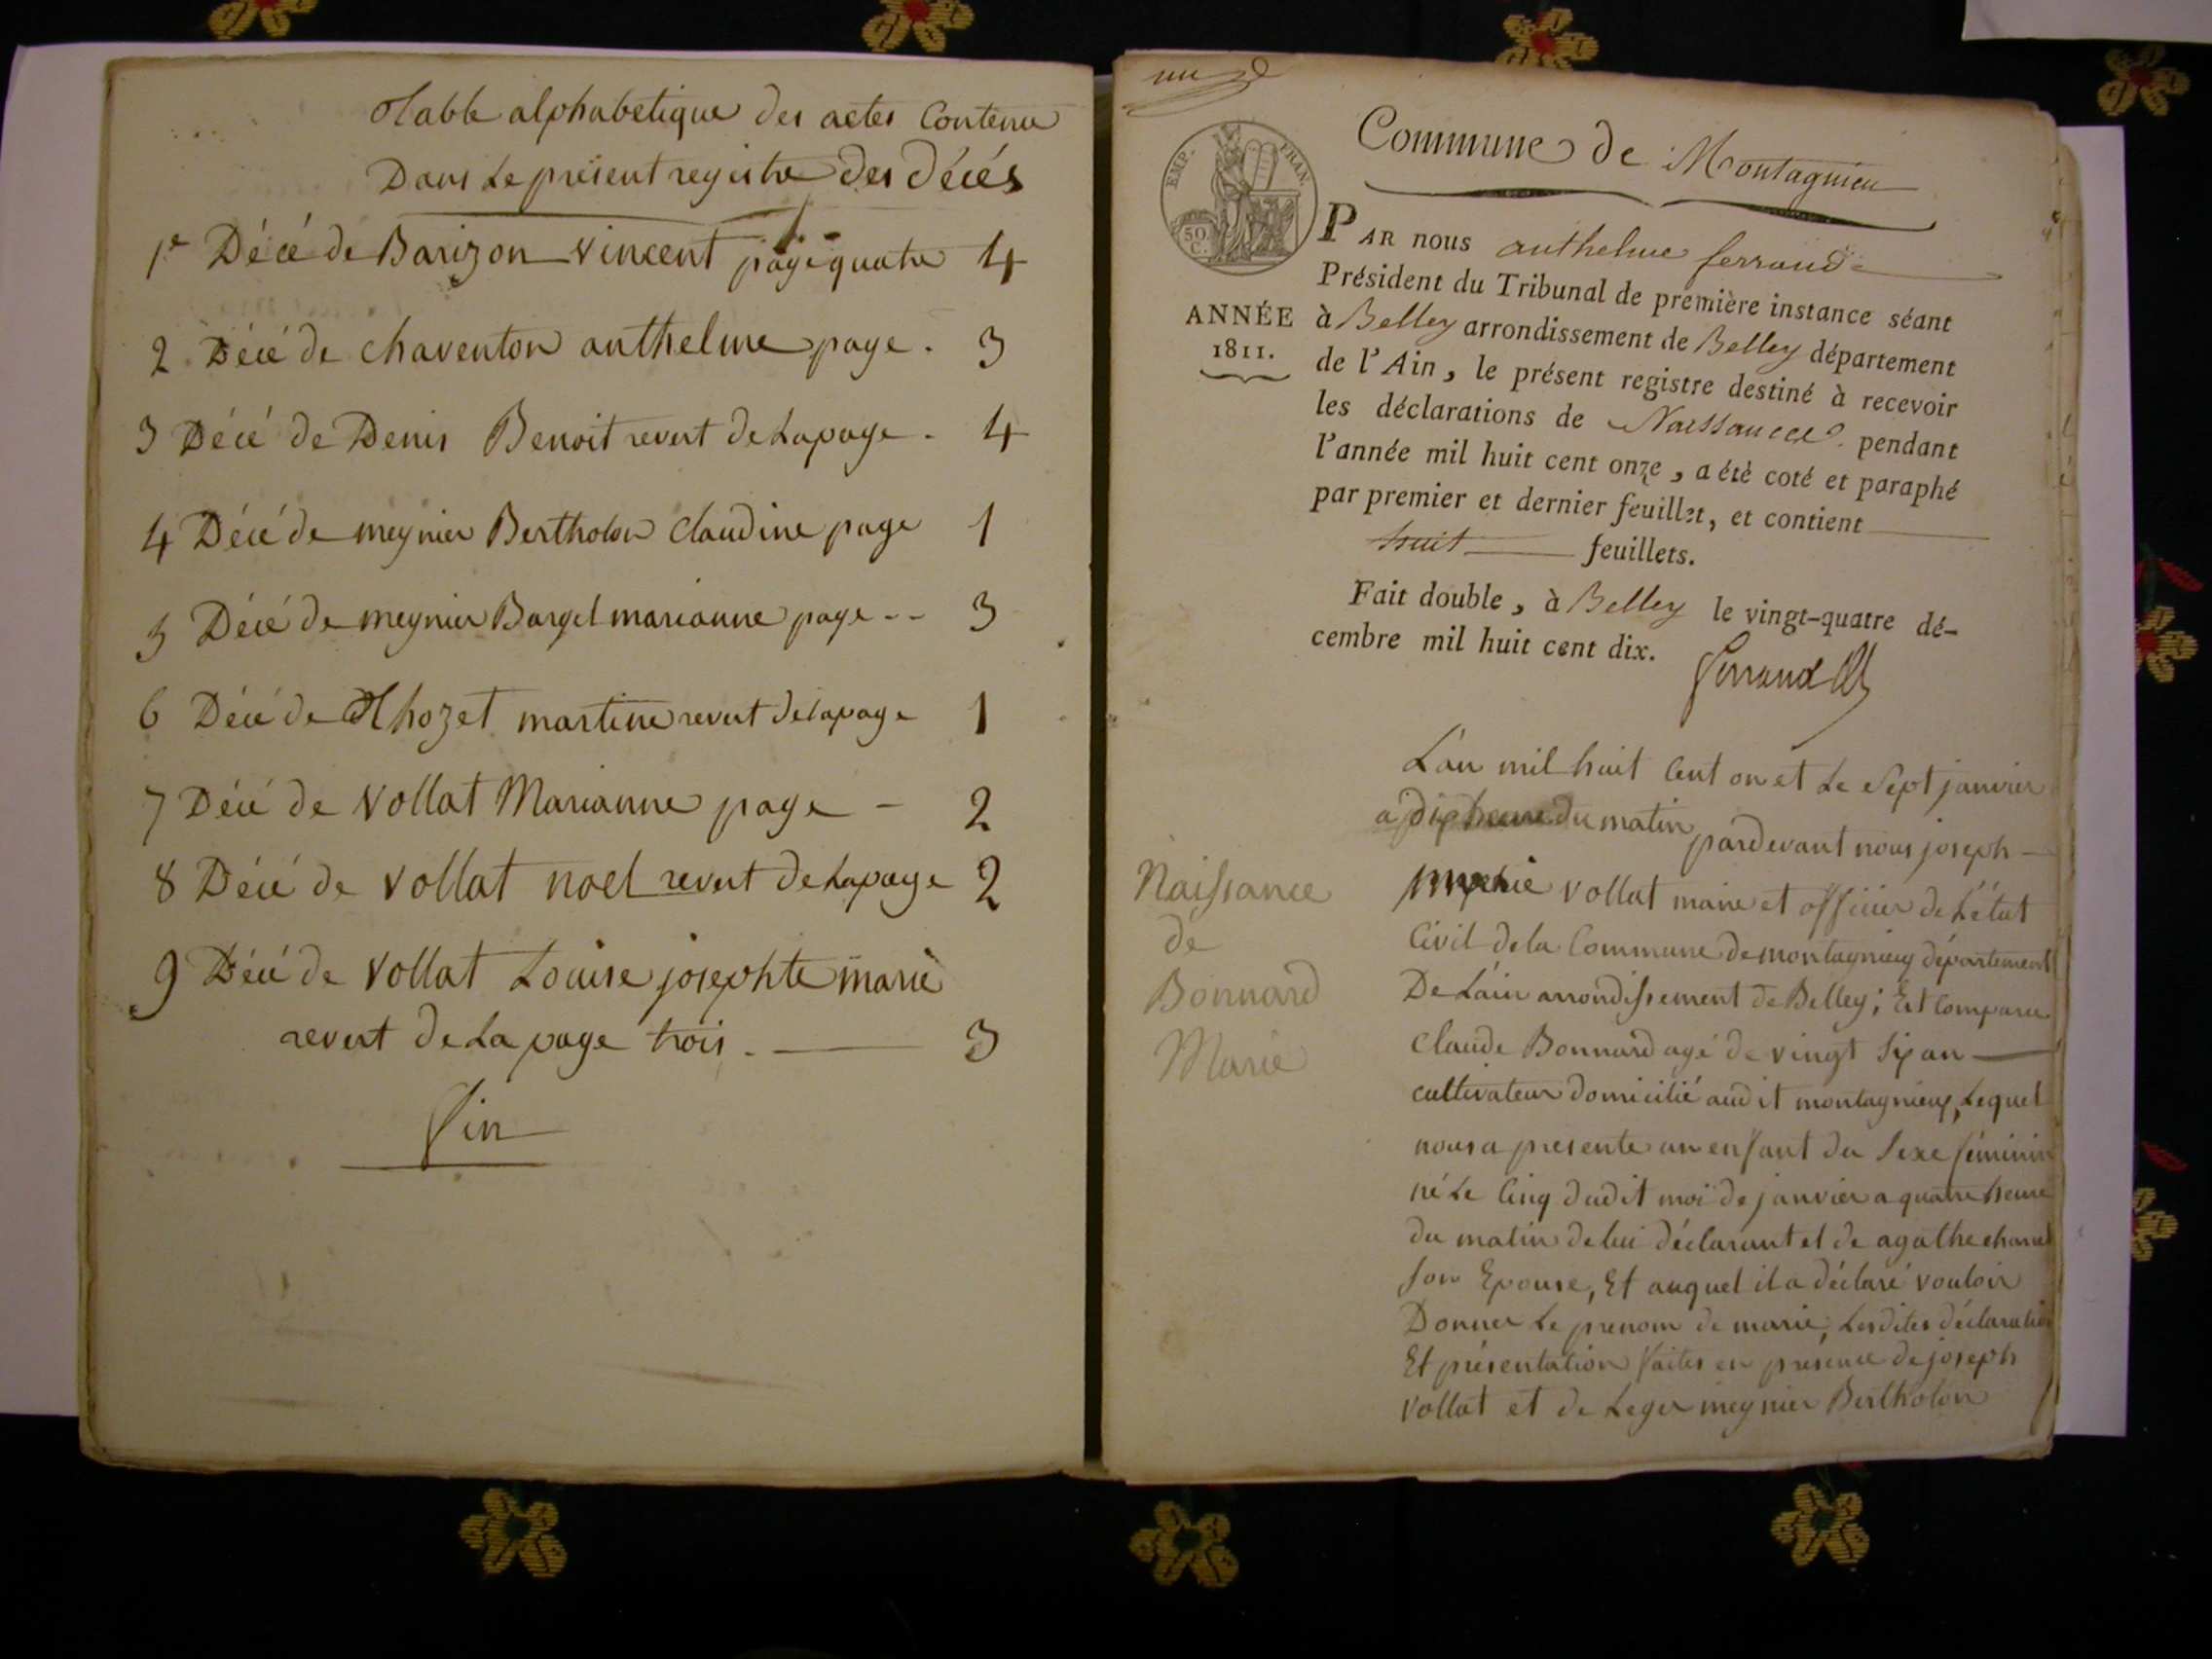 Table alphabetique des actes Contenu
Dans Le présent registre des décés
1e Décé de Barizon vincent page quatre 4
2 Décé de chaventon anthelme page . 3
3 Décé de Denis Benoit revert de La page . 4
4 Décé de meynier Bertholon Claudine page 1
5 Décé de meynier Bargel marianne page -- 3
6 Décé de Thozet martine revert de la page 1
7 Décé de Vollat Marianne page - 2
8 Décé de Vollat noel revert de La page 2
9 Décé de Vollat Louise josephte marie
revert de La page trois . 3
fin
un
Commune de Montagnieu
EMP. FRAN.
50 C.
PAR nous anthelme ferrand
Président du Tribunal de première instance séant
ANNÉE
1811.
à Belley arrondissement de Belley département
de l'Ain, le présent registre destiné à recevoir
les déclarations de Naissance pendant
l'année mil huit cent onze, a été coté et paraphé
par premier et dernier feuillet, et contient
huit feuillets.
Fait double, à Belley le vingt-quatre dé-
cembre mil huit cent dix.
ferrand
L'an mil huit Cent on et Le Sept janvier
a dix heure du matin pardevant nous joseph
Naissance
de
Bonnard
Marie
Vollat maire et officier de L'état
Civil de la Commune de montagnieu département
De L'ain arrondissement de Belley; Est Comparu
Claude Bonnard agé de vingt six an
cultivateur domicilié audit montagnieu, Lequel
nous a presenté un enfant du Sexe féminin
né Le Cinq dudit moi de janvier a quatre heure
du matin de lui déclarant et de agathe
son Epouse, Et auquel il a déclaré vouloir
Donner Le prenom de marie; Lesdites déclaration
Et présentation faites en présence de joseph
Vollat et de Leger meynier Bertholon